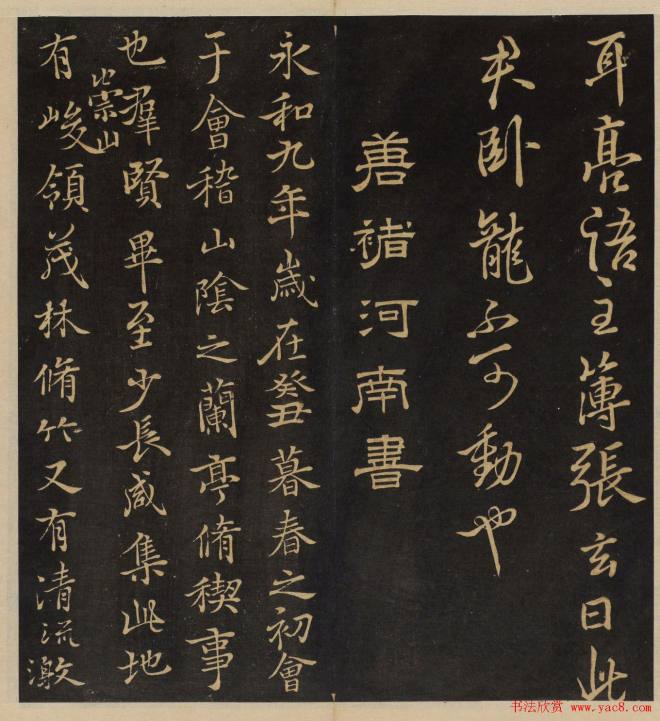 耳亮语主薄張玄曰此
夫卧龍不可動也
唐褚河南書
永和九年歲在癸丑暮春之初會
于會稽山陰之蘭亭脩稧事
也羣賢畢至少長咸集此地
有崇山峻領茂林脩竹又有清流激
书法欣赏 www.yac8.com